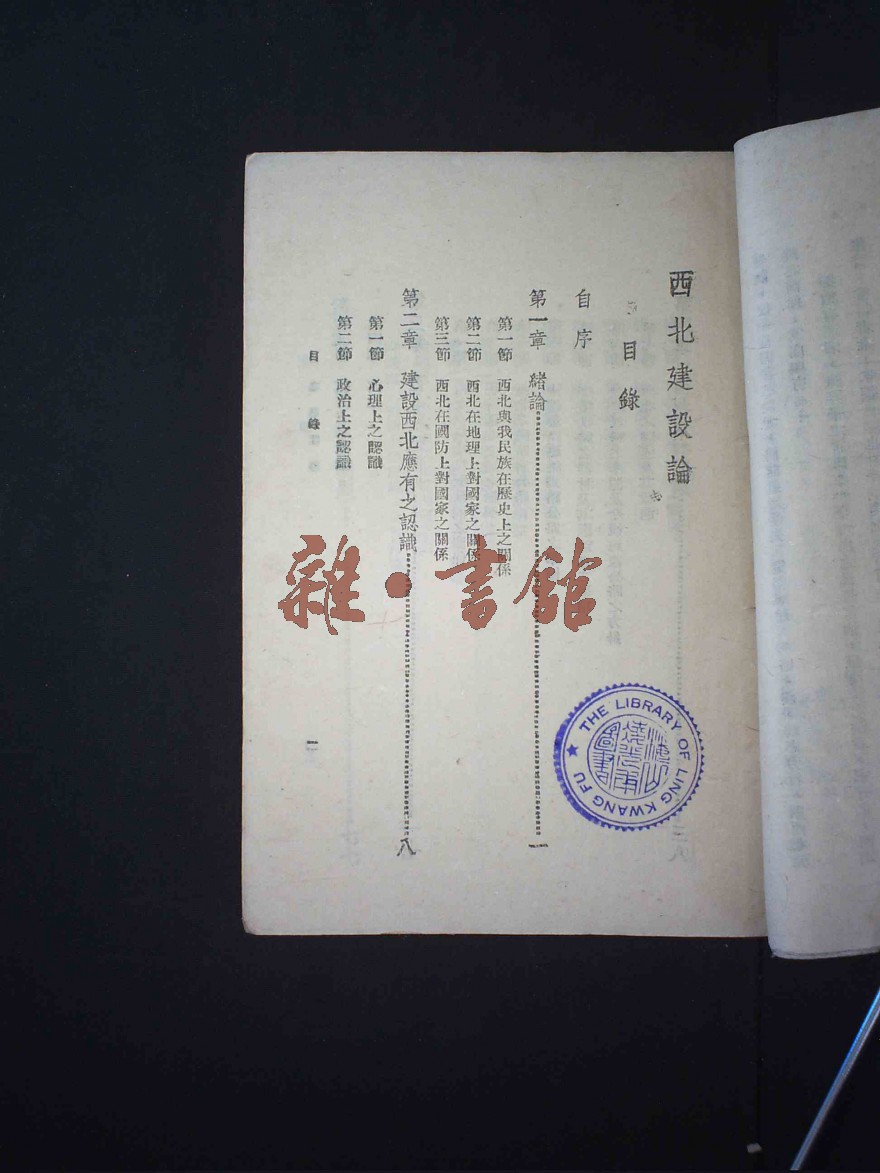 西北建設論
目錄
自序
第一章　緒論…………一
第一節　西北與我民族在歷史上之關係
第二節　西北在地理上對國家之關係
第三節　西北在國防上對國家之關係
第二章　建設西北應有之認識…………八
第一節　心理上之認識
第二節　政治上之認識
目　錄
一
雜·書館
THE LIBRARY OF LING KWANG FU